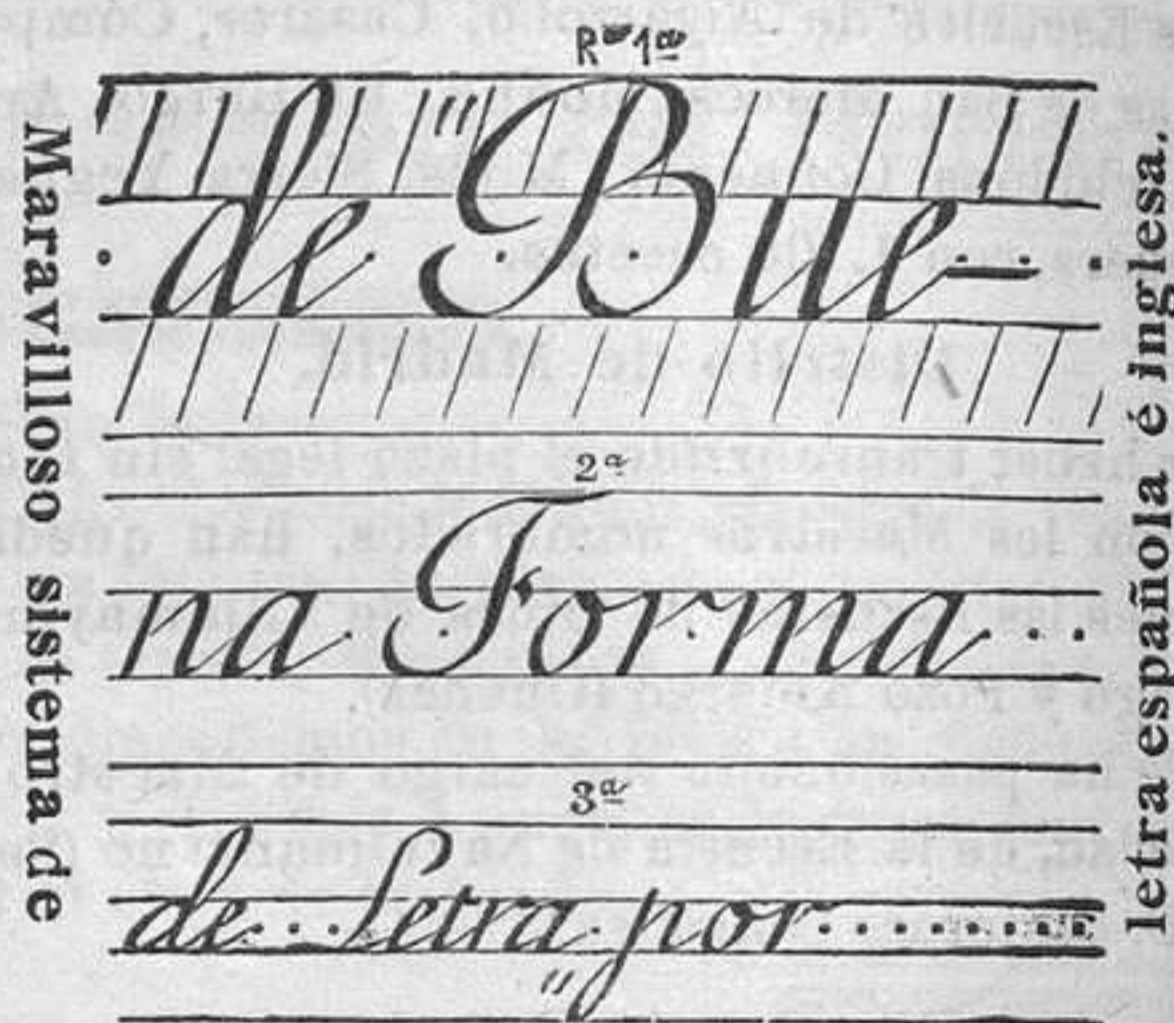 Maravilloso sistema de
R 1ª
de "Bue-
2ª
na Forma
3ª
de Letra por
letra española é inglesa.